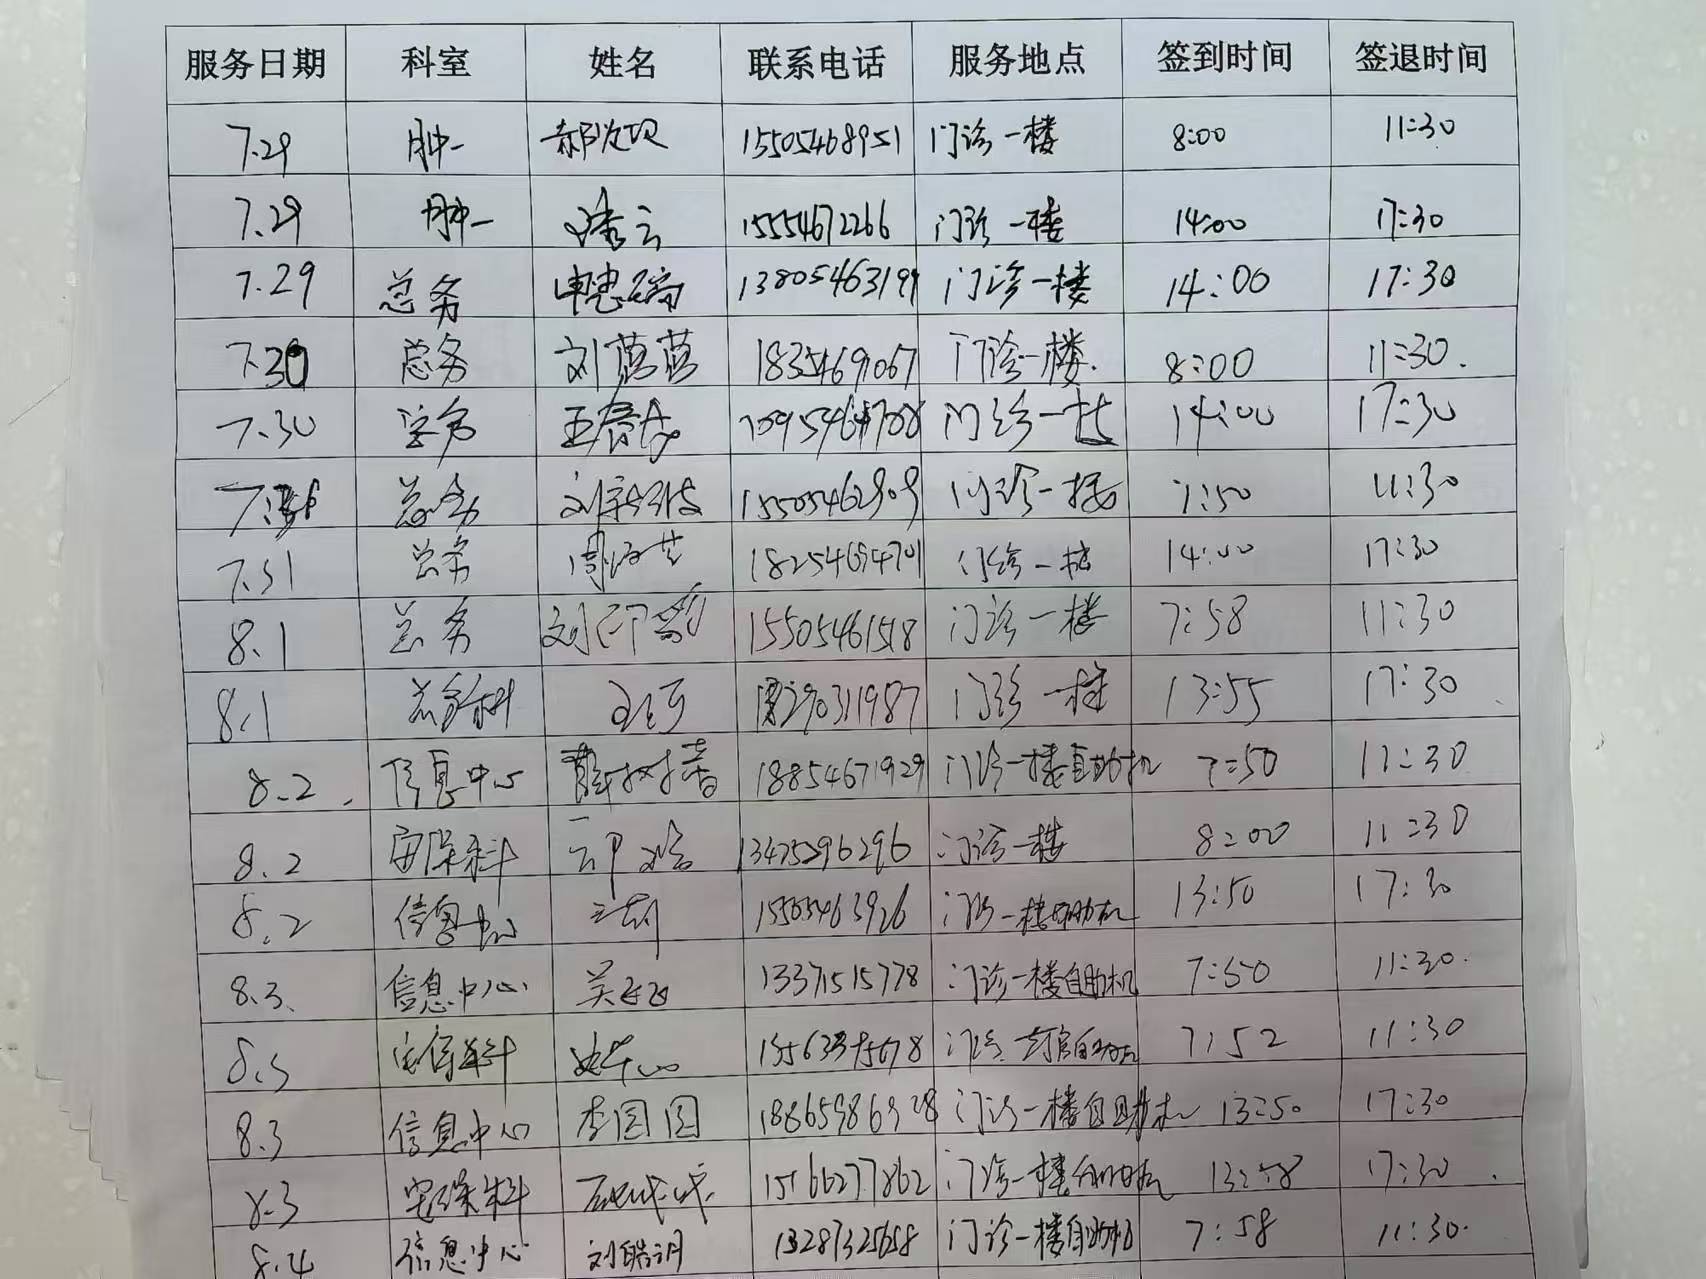 服务日期 科室 姓名 联系电话 服务地点 签到时间 签退时间
7.29 肿一 15505468951 门诊一楼 8:00 11:30
7.29 肿一 潘云 15554672266 门诊一楼 14:00 17:30
7.29 总务 13805463199 门诊一楼 14:00 17:30
7.30 总务 刘蓝蓝 门诊一楼. 8:00 11:30.
7.30 门诊一楼 14:00 17:30
总务 15505462909 门诊一楼 7:50 11:30
7.31 总务 18254694701 门诊一楼 14:00 17:30
8.1 总务 15505461518 门诊一楼 7:58 11:30
8.1 总务科 门诊一楼 13:55 17:30
8.2 信息中心 18854671929 门诊一楼自助机 7:50 11:30
8.2 13475296296 门诊一楼 8:00 11:30
8.2 信息中心 15505463926 门诊一楼自助机 13:50 17:30
8.3 信息中心 吴飞飞 13371515778 门诊一楼自助机 7:50 11:30.
8.3 门诊一楼自助机 7:52 11:30
8.3 信息中心 李圆圆 18865986928 门诊一楼自助机 13:50 17:30
8.3 15166277862 门诊一楼自助机 13:58 17:30
8.4 信息中心 刘皓明 13287325658 门诊一楼自助机 7:58 11:30.